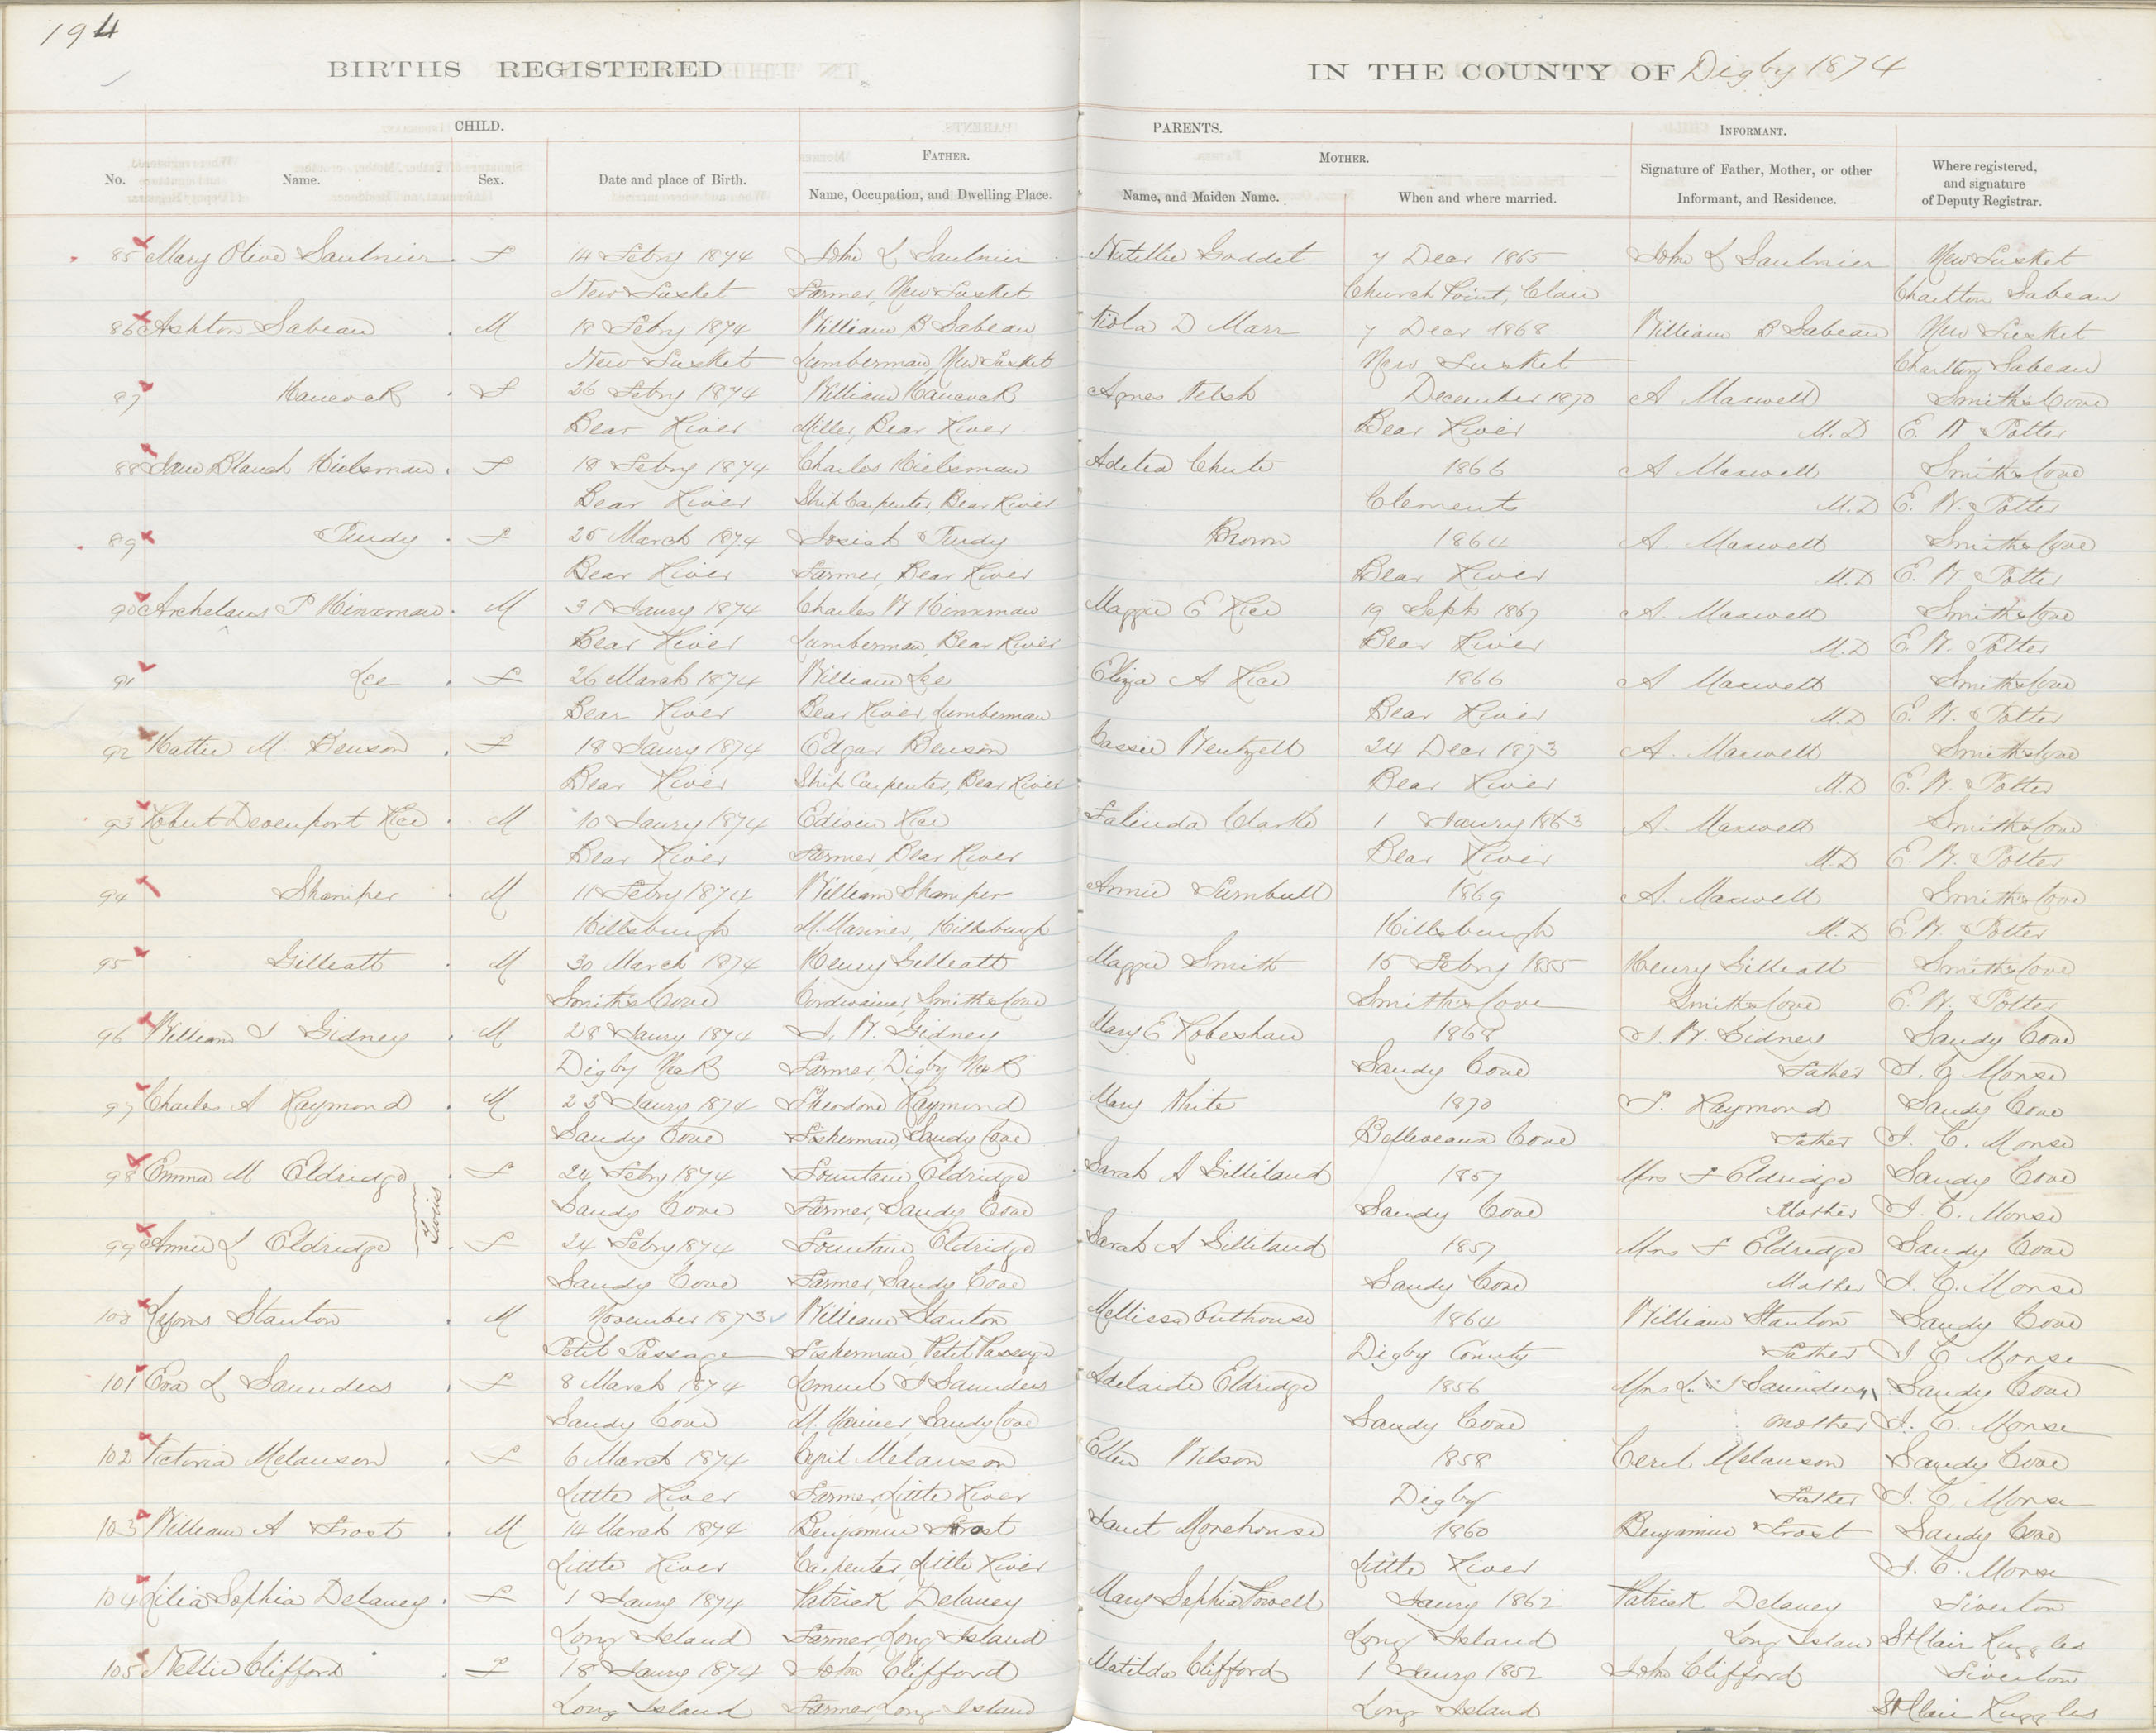 194
BIRTHS REGISTERED IN THE COUNTY OF Digby 1874
CHILD. PARENTS. INFORMANT.
FATHER. MOTHER.
No. Name. Sex. Date and place of Birth. Name, Occupation, and Dwelling Place. Name, and Maiden Name. When and where married. Signature of Father, Mother, or other Informant, and Residence. Where registered, and signature of Deputy Registrar.
85 Mary Olive Saulnier F 14 Febry 1874 John L Saulnier Natillie Goddet 7 Decr 1865 John L Saulnier New Tusket
New Tusket Farmer, New Tusket Church Point, Clare Charlton Sabean
86 Ashton Sabean M 18 Febry 1874 William B Sabean Viola D Marr 7 Decr 1868 William B Sabean New Tusket
New Tusket Lumberman, New Tusket New Tusket Charlton Sabean
87 Hancock F 26 Febry 1874 William Hancock Agnes Welsh December 1870 A Maxwell Smith's Cove
Bear River Miller, Bear River Bear River M.D E. W. Potter
88 Blanch F 18 Febry 1874 Charles Adelia Chute 1866 A Maxwell Smith's Cove
Bear River Ship Carpenter, Bear River Clements M.D E. W. Potter
89 F 25 March 1874 Josiah Brown 1864 A. Maxwell Smith's Cove
Bear River Farmer, Bear River Bear River M.D E. W. Potter
90 Archelaus P Hinxman M 31 Jaury 1874 Charles W Hinxman Maggie E Rice 19 Sept 1867 A. Maxwell Smith's Cove
Bear River Lumberman, Bear River Bear River M.D E. W. Potter
91 Lee F 26 March 1874 William Lee Eliza A Rice 1866 A Maxwell Smith's Cove
Bear River Bear River, Lumberman Bear River M.D E. W. Potter
92 Hattie M. Benson F 18 Jaury 1874 Edgar Benson Cassie Wentzell 24 Decr 1873 A. Maxwell Smith's Cove
Bear River Ship Carpenter, Bear River Bear River M.D E. W. Potter
93 Robert Devenport Rice M 10 Jaury 1874 Edwin Rice Falinda Clarke 1 Jaury 1863 A. Maxwell Smith's Cove
Bear River Farmer, Bear River Bear River M.D E. W. Potter
94 Shamper M 11 Febry 1874 William Shamper Annie Turnbull 1869 A. Maxwell Smith's Cove
Hillsburgh M. Mariner, Hillsburgh Hillsburgh M.D E. W. Potter
95 Gilleatt M 30 March 1874 Henry Gilleatt Maggie Smith 15 Febry 1855 Henry Gilleatt Smith's Cove
Smith's Cove Cordwainer, Smith's Cove Smith's Cove Smith's Cove E. W. Potter
96 William I Gidney M 28 Jaury 1874 I. W. Gidney Mary E Robeshaw 1868 I. W. Gidney Sandy Cove
Digby Neck Farmer, Digby Neck Sandy Cove Father I. C. Morse
97 Charles A Raymond M 23 Jaury 1874 Theodore Raymond Mary White 1870 T. Raymond Sandy Cove
Sandy Cove Fisherman, Sandy Cove Belleveaux Cove Father I. C. Morse
98 Emma M Eldridge F 24 Febry 1874 Fountain Eldridge Sarah A Gilliland 1857 Mrs F Eldridge Sandy Cove
Twins
Sandy Cove Farmer, Sandy Cove Sandy Cove Mother I. C. Morse
99 Annie L Eldridge F 24 Febry 1874 Fountain Eldridge Sarah A Gilliland 1857 Mrs F Eldridge Sandy Cove
Sandy Cove Farmer, Sandy Cove Sandy Cove Mother I. C. Morse
100 Lyons Stanton M November 1873 William Stanton Mellissa Outhouse 1864 William Stanton Sandy Cove
Petit Passage Fisherman, Petit Passage Digby County Father I C Morse
101 Eva L Saunders F 8 March 1874 Lemuel I Saunders Adelaide Eldridge 1856 Mrs L. I Saunders Sandy Cove
Sandy Cove M. Mariner, Sandy Cove Sandy Cove Mother I. C. Morse
102 Victoria Melanson F 6 March 1874 Cyril Melanson Ellen Wilson 1858 Ceril Melanson Sandy Cove
Little River Farmer, Little River Digby Father I. C. Morse
103 William A Frost M 14 March 1874 Benjamin Frost Janet Morehouse 1860 Benjamin Frost Sandy Cove
Little River Carpenter, Little River Little River I. C. Morse
104 Lilia Sophia Delaney F 1 Jaury 1874 Patrick Delaney Mary Sophia Powell Jaury 1862 Patrick Delaney Tiverton
Long Island Farmer, Long Island Long Island Long Islan St Clair Ruggles
105 Nellie Clifford F 18 Jaury 1874 John Clifford Matilda Clifford 1 Jaury 1852 John Clifford Tiverton
Long Island Farmer, Long Island Long Island St Clair Ruggles